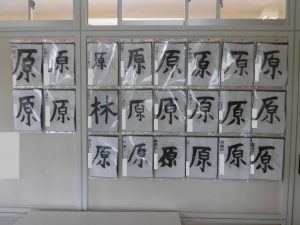 原 原 原 原 原 原 原 原
原 原 林 原 原 原 原 原
原 原 原 原 原 原